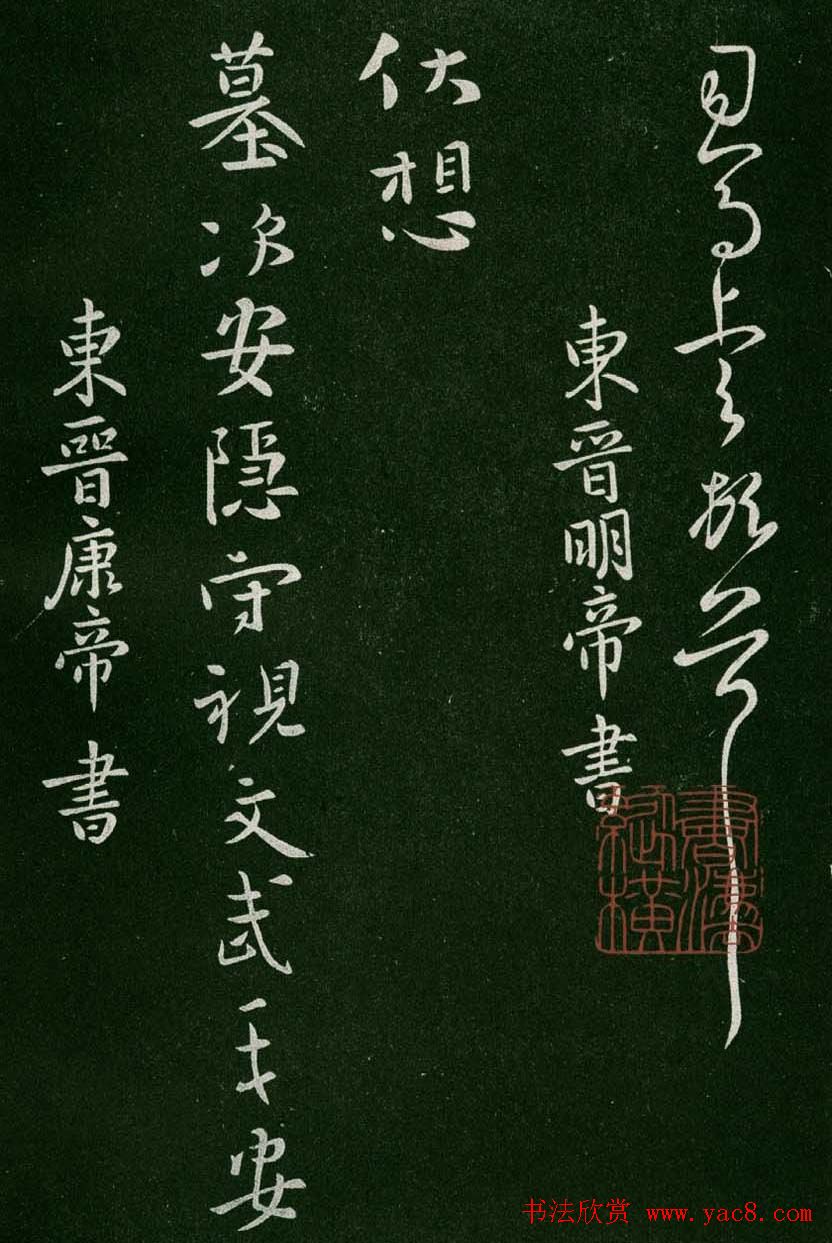 東晉明帝書
伏想
墓次安隱守視文武平安
東晉康帝書
书法欣赏 www.yac8.com